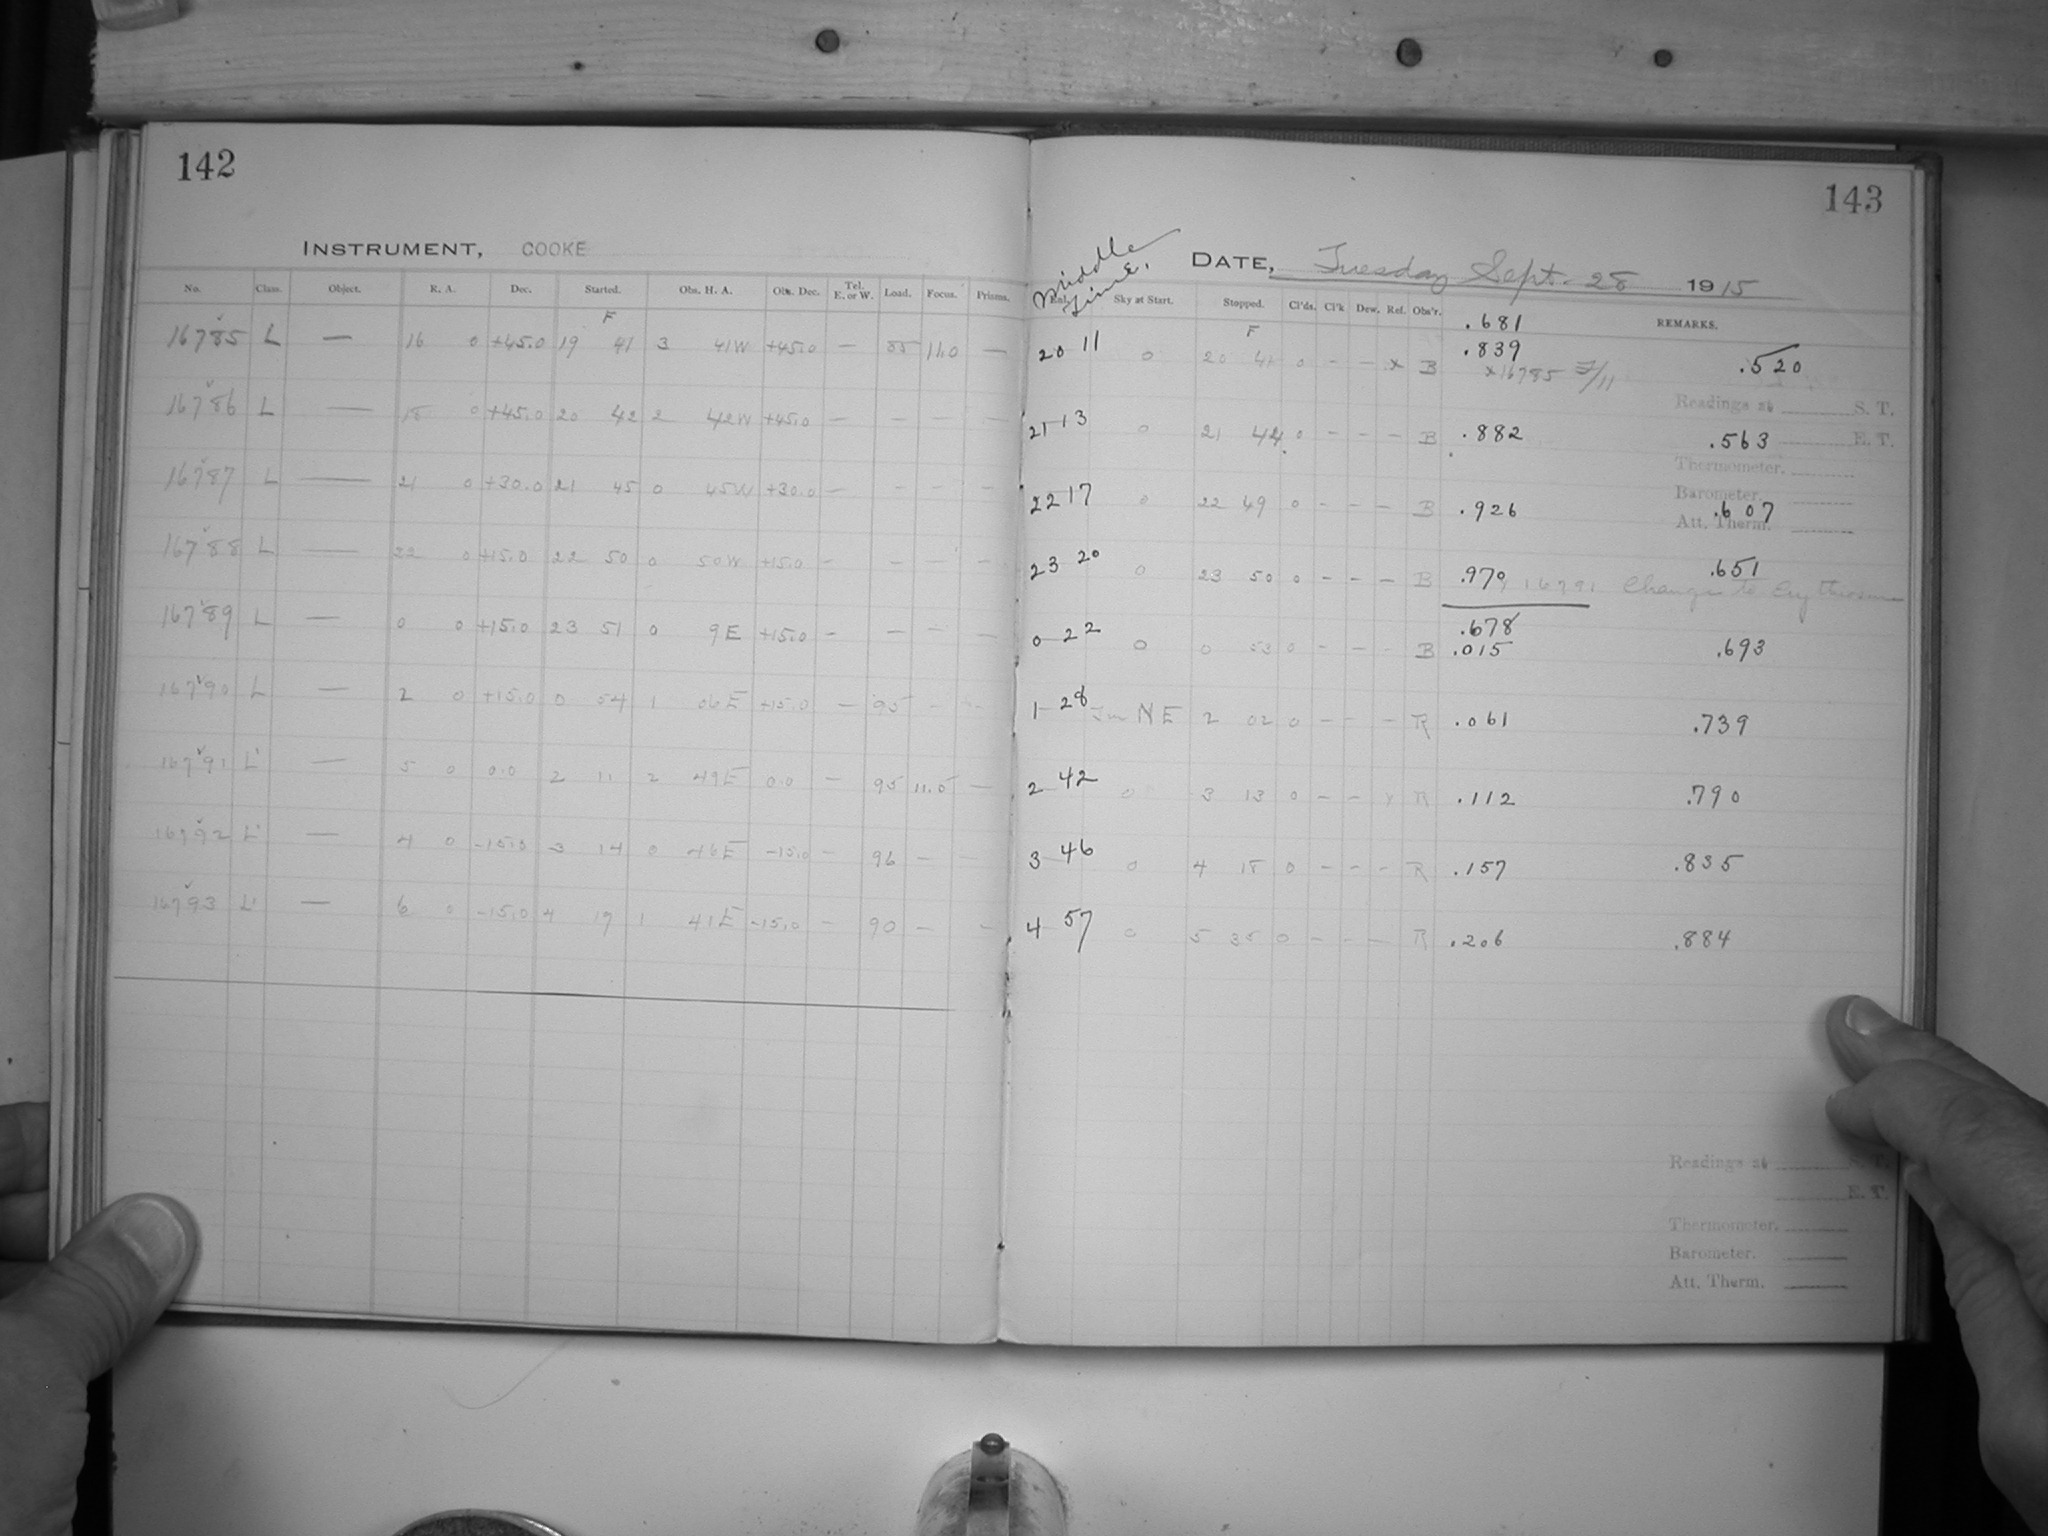 142
143
INSTRUMENT, COOKE
Middle Time.
DATE, Tuesday Sept. 28 1915
No. Class. Object. R. A. Dec. Started. Obs. H. A. Obs. Dec. Tel. E. or W. Load. Focus. Prisms. Sky at Start. Stopped. Cl'ds. Cl'k Dew. Ref. Obs'r. REMARKS.
.681
F F
16785 L — 16 0 +45.0 19 41 3 41W +45.0 — 85 11.0 — 20 11 0 20 41 0 - - x B .839 .520
x16785 F/11
Readings at S. T.
16786 L — 18 0 +45.0 20 42 2 42W +45.0 — — — — 21 13 0 21 44 0 - - - B .882 .563
E. T.
Thermometer.
16787 L — 21 0 +30.0 21 45 0 45W +30.0 — - - - 22 17 0 22 49 0 - - - B .926 .607
Barometer.
Att. Therm.
16788 L — 22 0 +15.0 22 50 0 50W +15.0 - - - - 23 20 0 23 50 0 - - - B .970 .651
16791 Change to Erythrosin
.678
16789 L — 0 0 +15.0 23 51 0 9E +15.0 - - - - 0 22 0 0 53 0 - - - B .015 .693
16790 L — 2 0 +15.0 0 54 1 06E +15.0 — 95 - - 1 28 NE 2 02 0 - - - R .061 .739
16791 L' — 5 0 0.0 2 11 2 49E 0.0 — 95 11.5 — 2 42 0 3 13 0 - - R .112 .790
16792 L' — 4 0 -15.0 3 14 0 46E -15.0 - 96 - - 3 46 0 4 18 0 - - - R .157 .835
16793 L' — 6 0 -15.0 4 19 1 41E -15.0 - 90 - - 4 57 0 5 35 0 - - - R .206 .884
Readings at S. T.
E. T.
Thermometer.
Barometer.
Att. Therm.